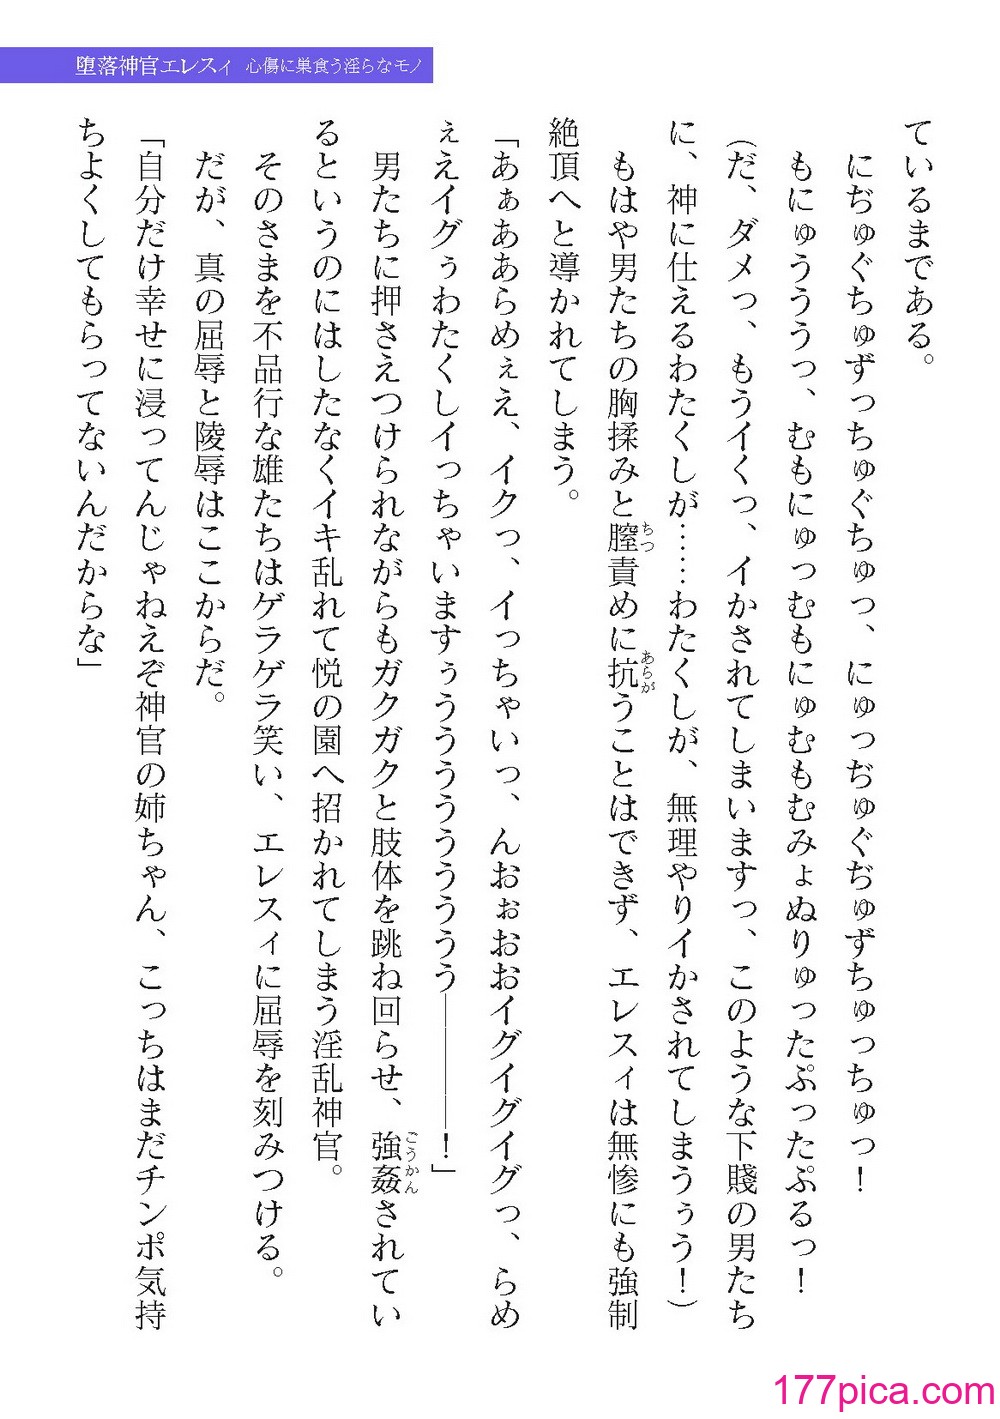 堕落神官エレスィ 心傷に巣食う淫らなモノ
ているまである。
にぢゅぐちゅずっちゅぐちゅっ、にゅっぢゅぐぢゅずちゅっちゅっ！
もにゅううぅっ、むもにゅっむもにゅむもむみょぬりゅったぷったぷるっ！
（だ、ダメっ、もうイくっ、イかされてしまいますっ、このような下賤の男たち
に、神に仕えるわたくしが……わたくしが、無理やりイかされてしまうぅう！）
もはや男たちの胸揉みと膣責めに抗うことはできず、エレスィは無惨にも強制
絶頂へと導かれてしまう。
「あぁああらめぇえ、イクっ、イっちゃいっ、んおぉおおイグイグイグっ、らめ
ぇえイグぅわたくしイっちゃいますぅうううううううう――――！」
男たちに押さえつけられながらもガクガクと肢体を跳ね回らせ、強姦されてい
るというのにはしたなくイキ乱れて悦の園へ招かれてしまう淫乱神官。
そのさまを不品行な雄たちはゲラゲラ笑い、エレスィに屈辱を刻みつける。
だが、真の屈辱と陵辱はここからだ。
「自分だけ幸せに浸ってんじゃねえぞ神官の姉ちゃん、こっちはまだチンポ気持
ちよくしてもらってないんだからな」
177pica.com